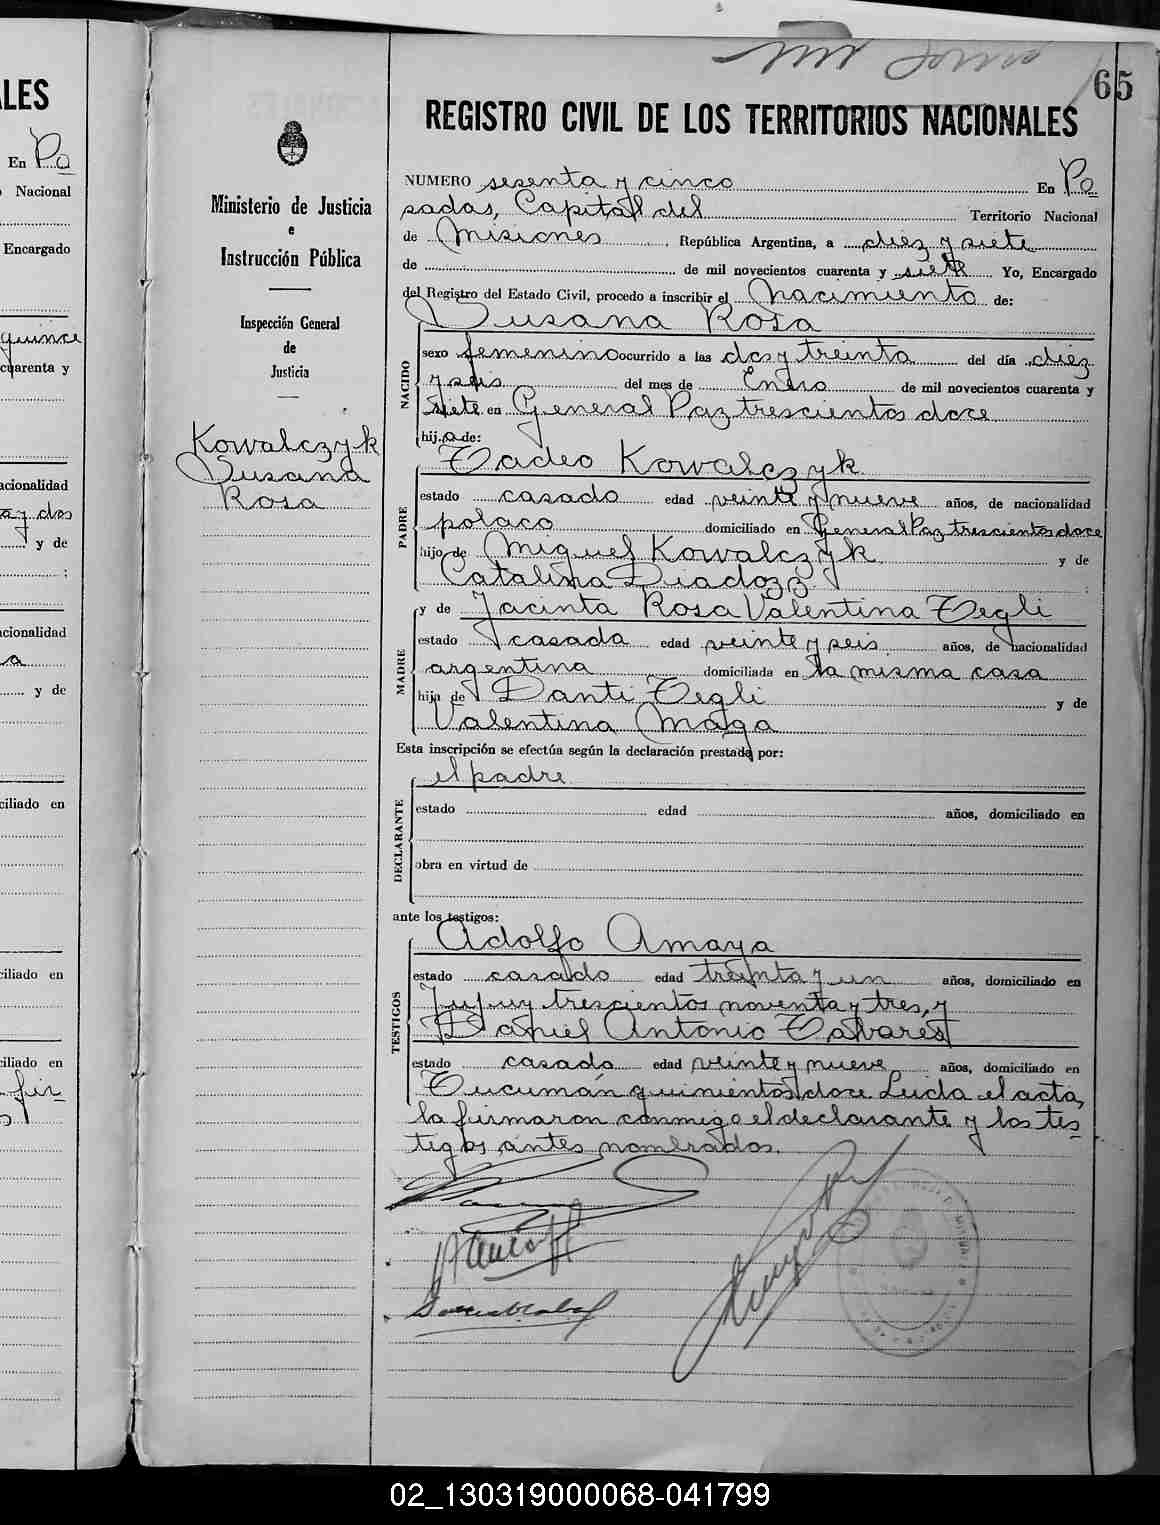 LES
En Po
Nacional
Encargado
quince
cuarenta y
acionalidad
y dos
y de
;
cionalidad
a
y de
ciliado en
ciliado en
ciliado en
fir-
65
REGISTRO CIVIL DE LOS TERRITORIOS NACIONALES
Ministerio de Justicia
e
Instrucción Pública
Inspección General
de
Justicia
Kowalczyk
Susana
Rosa
NUMERO sesenta y cinco En Po
sadas, Capital del Territorio Nacional
de Misiones, República Argentina, a diez y siete
de de mil novecientos cuarenta y siete Yo, Encargado
del Registro del Estado Civil, procedo a inscribir el Nacimiento de:
Susana Rosa
NACIDO
sexo femenino ocurrido a las dos y treinta del día diez
y seis del mes de Enero de mil novecientos cuarenta y
siete en General Paz trescientos doce
hij a de:
Tadeo Kowalczyk
PADRE
estado casado edad veinte y nueve años, de nacionalidad
polaco domiciliado en General Paz trescientos doce
hijo de Miguel Kowalczyk y de
Catalina Diadozz
y de Jacinta Rosa Valentina Tegli
MADRE
estado casada edad veinte y seis años, de nacionalidad
argentina domiciliada en la misma casa
hija de Danti Tegli y de
Valentina Maga
Esta inscripción se efectúa según la declaración prestada por:
el padre
DECLARANTE
estado edad años, domiciliado en
obra en virtud de
ante los testigos:
Adolfo Amaya
TESTIGOS
estado casado edad treinta y un años, domiciliado en
Jujuy trescientos noventa y tres, y
Daniel Antonio Tavares
estado casado edad veinte y nueve años, domiciliado en
Tucumán quinientos doce Leida el acta,
la firmaron conmigo el declarante y los tes-
tigos antes nombrados.
02_130319000068-041799